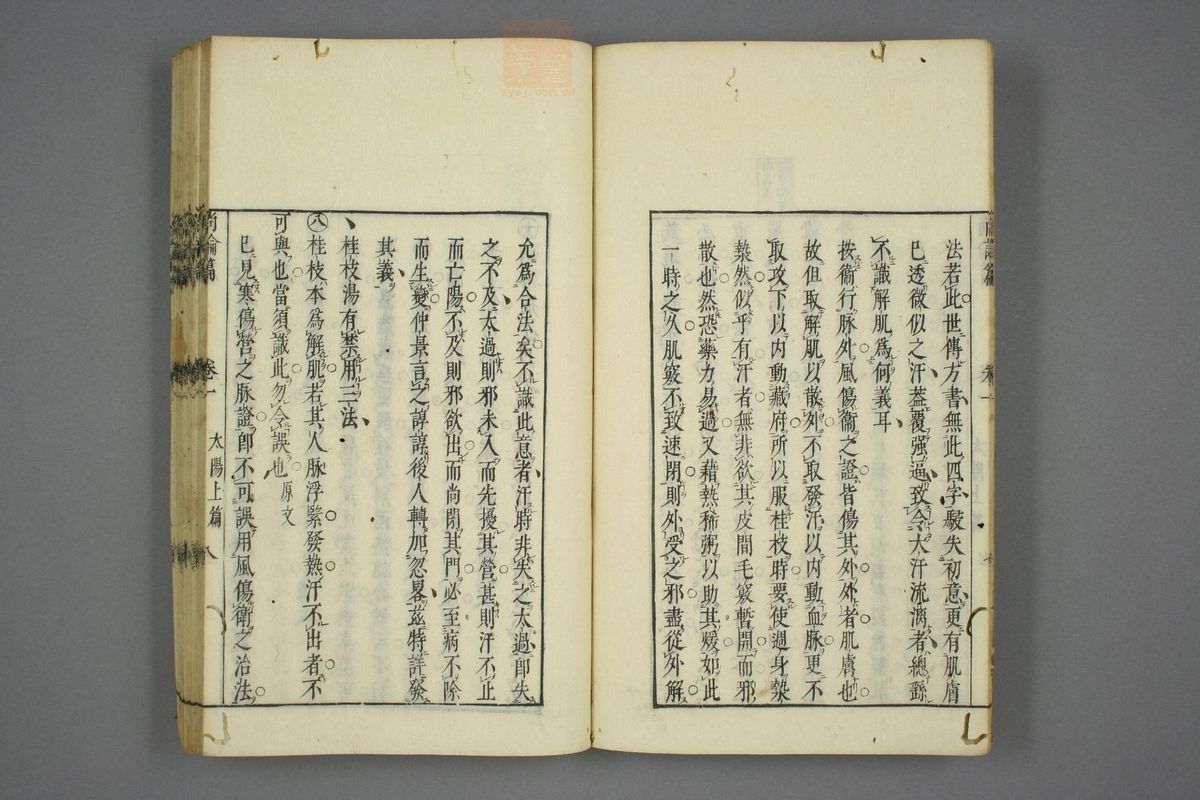 法若此世傳方書無此四字駿失初意更有肌膚
巳透微似之汗葢覆强逼致令大汗流漓者總繇
不識解肌爲何義耳
按衞行脉外風傷衞之證皆傷其外外者肌膚也
故但取解肌以散外不取發汗以內動血脉更不
取攻下以內動藏府所以服桂枝時要使遍身漐
漐然似乎有汗者無非欲其皮間毛竅暫開而邪
散也然恐藥力易過又藉熱稀粥以助其煖如此
一時之久肌竅不致速閉則外受之邪盡從外解
卷一
太陽上篇
允爲合法矣不識此意者汗時非失之太過卽失
之不及太過則邪未入而先擾其營甚則汗不止
而亡陽不及則邪欲出而尚閉其門必至病不除
而生變仲景言之諄諄後人轉加忽畧茲特詳發
其義
桂枝湯有禁用三法
八 桂枝本爲解肌若其人脉浮緊發熱汗不出者不
可與也當須識此勿令誤也 原文
巳見寒傷營之脉證卽不可誤用風傷衞之治法
尚論篇
卷一
太陽上篇
八